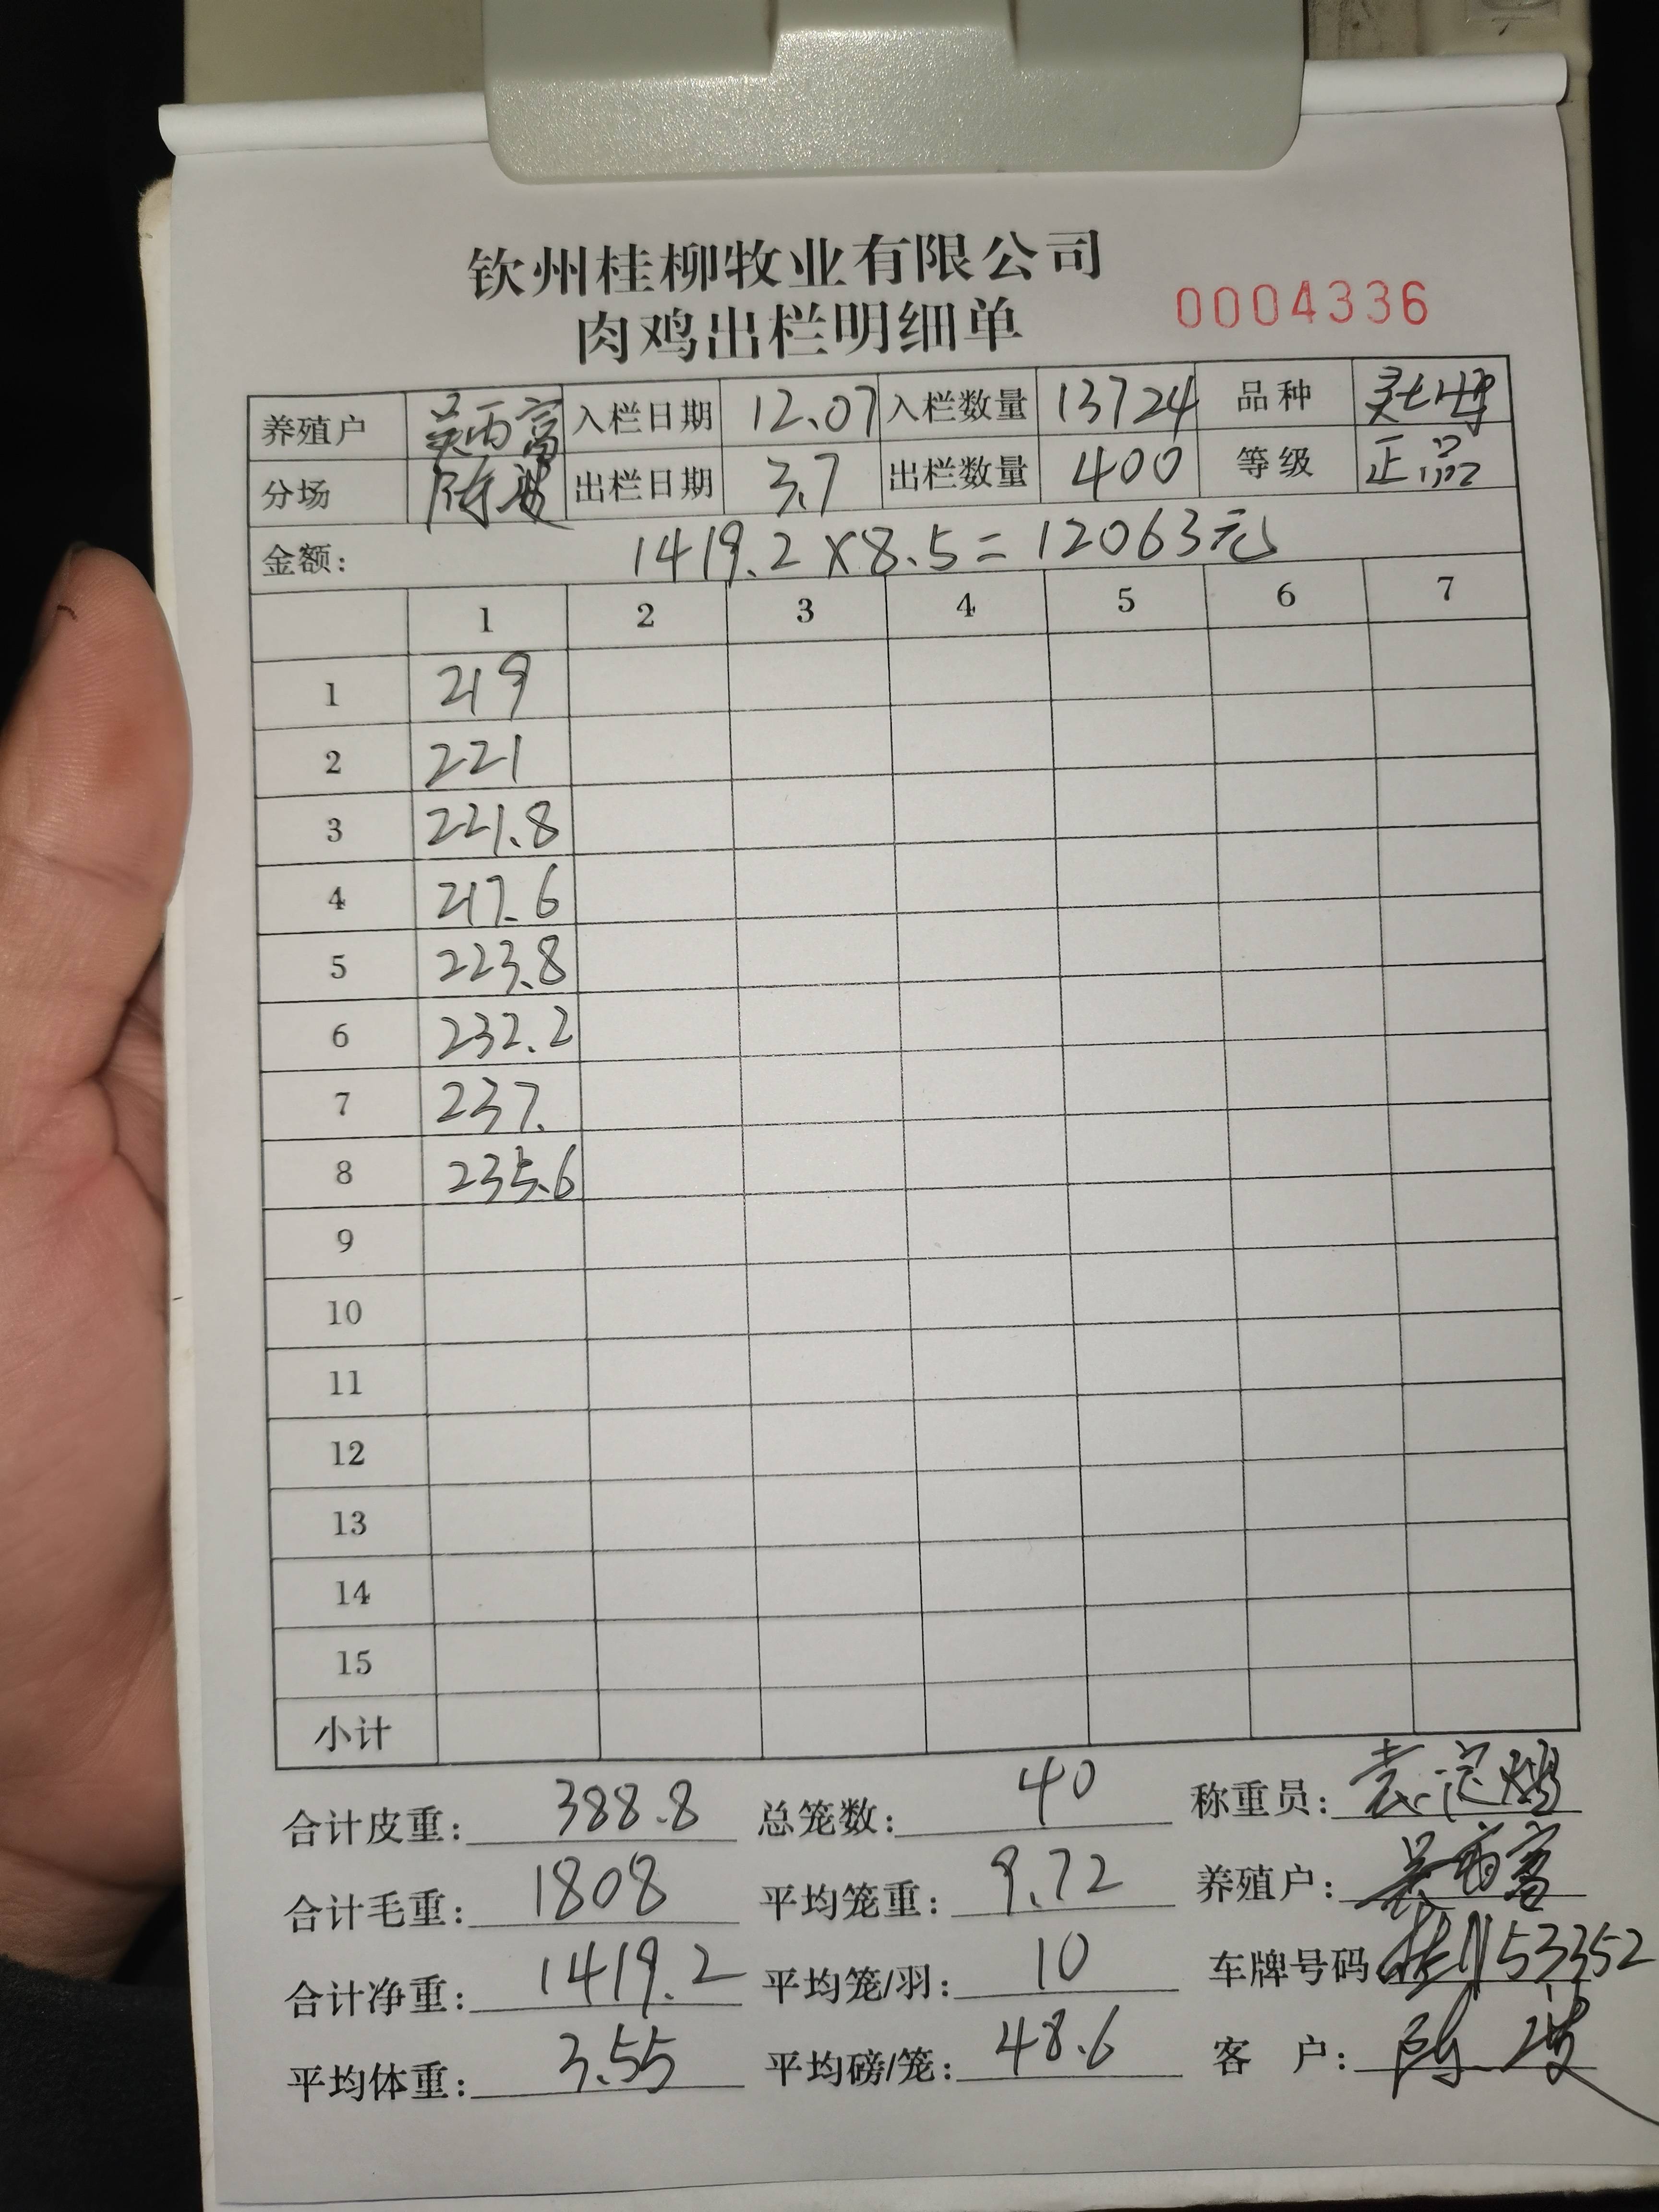 钦州桂柳牧业有限公司
肉鸡出栏明细单 0004336
养殖户 入栏日期 12.07 入栏数量 13724 品种
分场 陈波 出栏日期 3.7 出栏数量 400 等级 正品
金额: 1419.2×8.5=12063元
1 2 3 4 5 6 7
1 219
2 221
3 221.8
4 217.6
5 223.8
6 232.2
7 237.
8 235.6
9
10
11
12
13
14
15
小计
合计皮重: 388.8 总笼数: 40 称重员:
合计毛重: 1808 平均笼重: 9.72 养殖户:
合计净重: 1419.2 平均笼/羽: 10 车牌号码 53352
平均体重: 3.55 平均磅/笼: 48.6 客户: 陈波